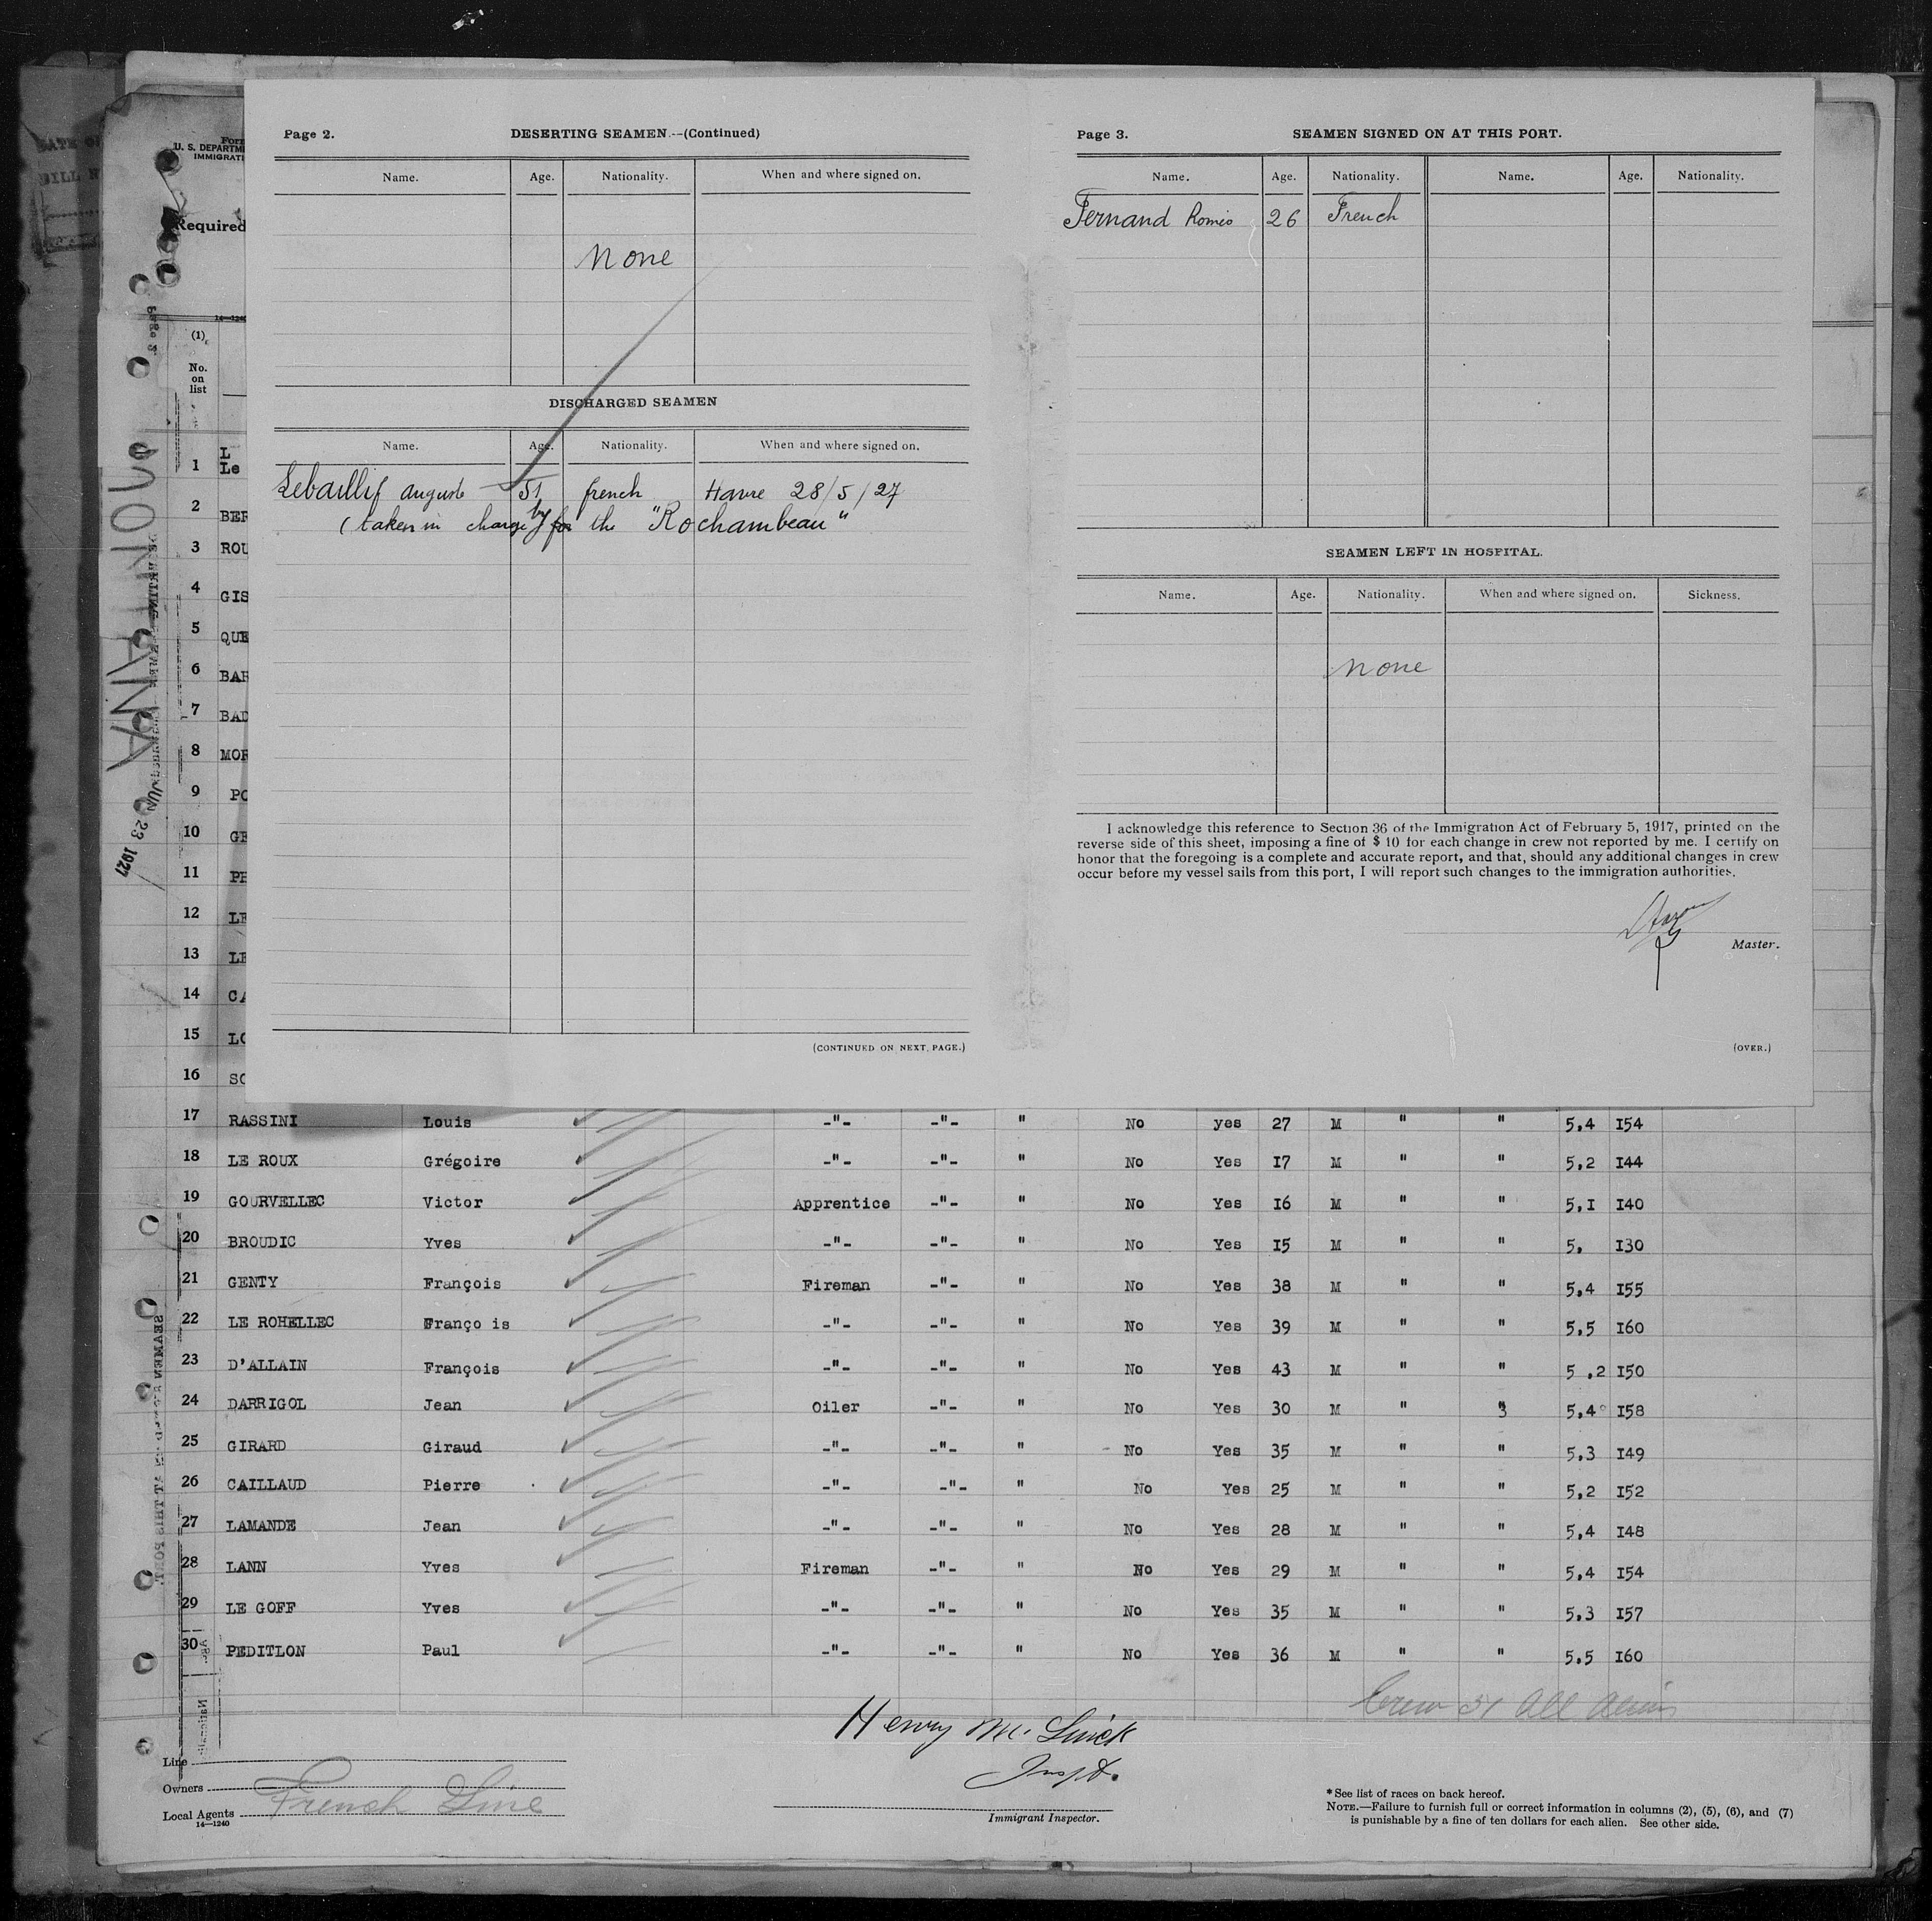 Page 2.
DESERTING SEAMEN.--(Continued)
Name. Age. Nationality. When and where signed on.
None
DISCHARGED SEAMEN
Name. Age. Nationality. When and where signed on.
Lebaillif auguste 51 french Havre 28/5/27
(taken in charge by for the "Rochambeau"
(CONTINUED ON NEXT PAGE.)
Page 3.
SEAMEN SIGNED ON AT THIS PORT.
Name. Age. Nationality. Name. Age. Nationality.
Fernand Romeo 26 French
SEAMEN LEFT IN HOSPITAL.
Name. Age. Nationality. When and where signed on. Sickness.
None
I acknowledge this reference to Section 36 of the Immigration Act of February 5, 1917, printed on the
reverse side of this sheet, imposing a fine of $ 10 for each change in crew not reported by me. I certify on
honor that the foregoing is a complete and accurate report, and that, should any additional changes in crew
occur before my vessel sails from this port, I will report such changes to the immigration authorities.
Master.
(OVER.)
U. S. DEPARTM
IMMIGRATI
Required
14—1240
(1)
No.
on
list
1 L
Le
2 BER
3 ROU
4 GIS
5 QUE
6 BAR
7 BAD
8 MOR
9 PO
10 GE
11 PE
12 LE
13 LE
14 CA
15 LO
16 SO
JUN 23 1927
17 RASSINI Louis -"- -"- " No yes 27 M " " 5,4 I54
18 LE ROUX Grégoire -"- -"- " No Yes I7 M " " 5,2 I44
19 GOURVELLEC Victor Apprentice -"- " No Yes I6 M " " 5,I I40
20 BROUDIC Yves -"- -"- " No Yes I5 M " " 5, I30
21 GENTY François Fireman -"- " No Yes 38 M " " 5,4 I55
22 LE ROHELLEC Franço is -"- -"- " No Yes 39 M " " 5,5 I60
23 D'ALLAIN François -"- -"- " No Yes 43 M " " 5 ,2 I50
24 DARRIGOL Jean Oiler -"- " No Yes 30 M " " 5,4 I58
25 GIRARD Giraud -"- -"- " No Yes 35 M " " 5,3 I49
26 CAILLAUD Pierre -"- -"- " No Yes 25 M " " 5,2 I52
27 LAMANDE Jean -"- -"- " No Yes 28 M " " 5,4 I48
28 LANN Yves Fireman -"- " No Yes 29 M " " 5,4 I54
29 LE GOFF Yves -"- -"- " No Yes 35 M " " 5,3 I57
30 PEDITLON Paul -"- -"- " No Yes 36 M " " 5,5 I60
Crew 51 All Aliens
Henry Mc
Inspt.
Immigrant Inspector.
Line
Owners
French Line
Local Agents
14—1240
* See list of races on back hereof.
NOTE.—Failure to furnish full or correct information in columns (2), (5), (6), and (7)
is punishable by a fine of ten dollars for each alien. See other side.